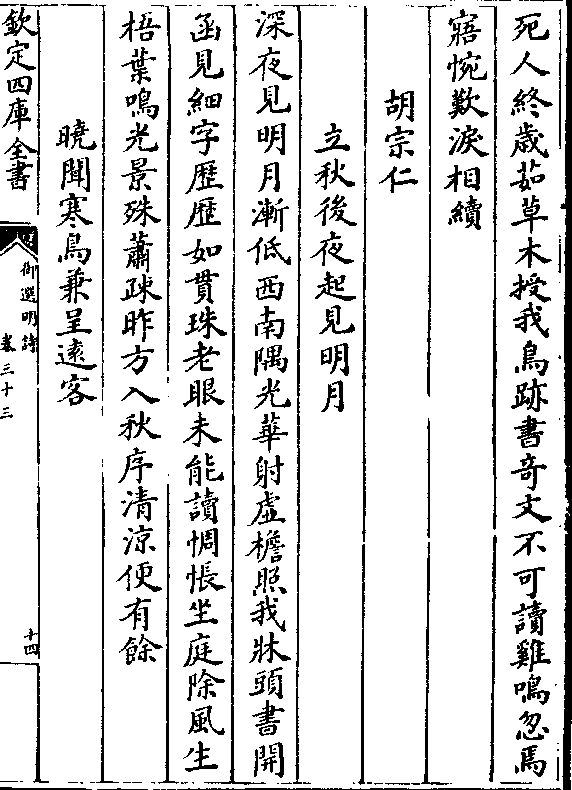 死人終歲茹草木授我鳥跡書奇文不可讀雞鳴忽焉
寤惋歎淚相續
胡宗仁
立秋後夜起見明月
深夜見明月漸低西南隅光華射虛檐照我牀頭書開
函見細字歷歷如貫珠老眼未能讀惆悵坐庭除風生
梧葉鳴光景殊蕭疎昨方入秋序清涼便有餘
曉聞寒鳥兼呈遠客
欽定四庫全書
御選明詩
卷三十三
十四